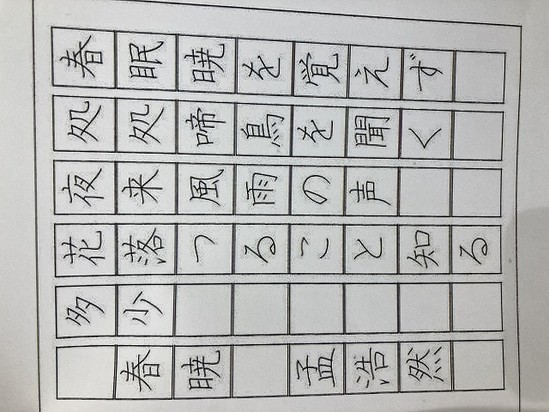 春眠暁を覚えず
処処啼鳥を聞く
夜来風雨の声
花落つること知る
多少
春暁 孟浩然